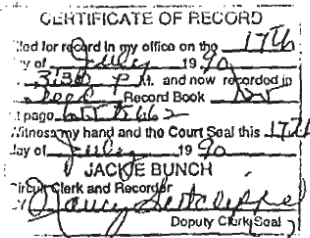 CERTIFICATE OF RECORD
iled for record in my office on the 17th
y of July 19 90
3:30 P M. and now recorded in
Deed Record Book
t page 662
Witness my hand and the Court Seal this 17th
day of July 19 90
JACKIE BUNCH
Circuit Clerk and Recorder
Nancy
Deputy Clerk/Seal